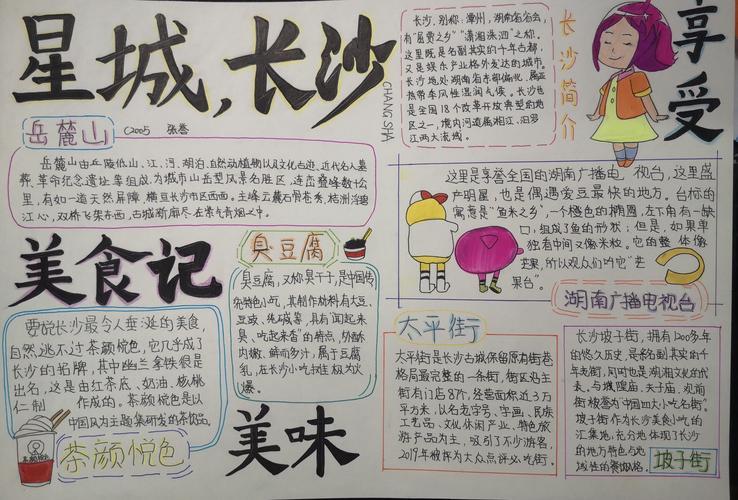 星城,长沙
CHANG SHA
享受
长沙简介
长沙,别称:潭州,湖南省省会,
有"屈贾之乡""潇湘洙泗"之称。
这里既是名副其实的千年古都,
又是娱乐产业格外发达的城市。
长沙地处湖南省东部偏北,属亚
热带季风性湿润气候。长沙也
是全国18个改革开放典型的地
区之一,境内河道属湘江、汨罗
江两大流域。
岳麓山
C2005 张誉
岳麓山由丘陵低山、江、河、湖泊、自然动植物以及文化古迹、近代名人墓
葬、革命纪念遗址等组成,为城市山岳型风景名胜区,连峦叠峰数十公
里,有如一道天然屏障,横亘长沙市区西面。主峰云麓石骨苍秀,桔洲浮碧
江心,双桥飞架东西,古城新廓尽在紫气青烟之中。
这里是享誉全国的湖南广播电视台,这里盛
产明星,也是偶遇爱豆最快的地方。台标的
寓意是"鱼米之乡",一个橙色的椭圆,左下角有一缺
口,组成了鱼的形状;但是,如果单
独看中间又像米粒。它的整体像
芒果,所以观众们叫它"芒
果台"。
湖南广播电视台
美食记
要说长沙最令人垂涎的美食,
自然逃不过茶颜悦色,它几乎成了
长沙的招牌,其中幽兰拿铁很是
出名,这是由红茶底、奶油、核桃
仁制作成的。茶颜悦色是以
中国风为主题集研发的茶饮品。
茶颜悦色
臭豆腐
臭豆腐,又称臭干子,是中国传
统特色小吃,其制作材料有大豆、
豆豉、纯碱等,具有"闻起来
臭、吃起来香"的特点,外酥
内嫩、鲜而多汁,属于豆腐
乳,在长沙小吃街极为火
爆。
美味
太平街
太平街是长沙古城保留原有街巷
格局最完整的一条街,街区沿主
街有门店87个,经营面积近3万
平方米,以名老字号、字画、民族
工艺品、文化休闲产业、特色旅
游产品为主,吸引了不少游客,
2019年被评为大众点评必吃街。
长沙坡子街,拥有1200多年
的悠久历史,是名副其实的千
年老街,同时也是湖湘文化的代
表。与城隍庙、夫子庙、观前
街被誉为"中国四大小吃名街"。
坡子街作为长沙美食小吃的
汇集地,充分地体现了长沙
的地方特色与地
域性的餐饮风格。
坡子街